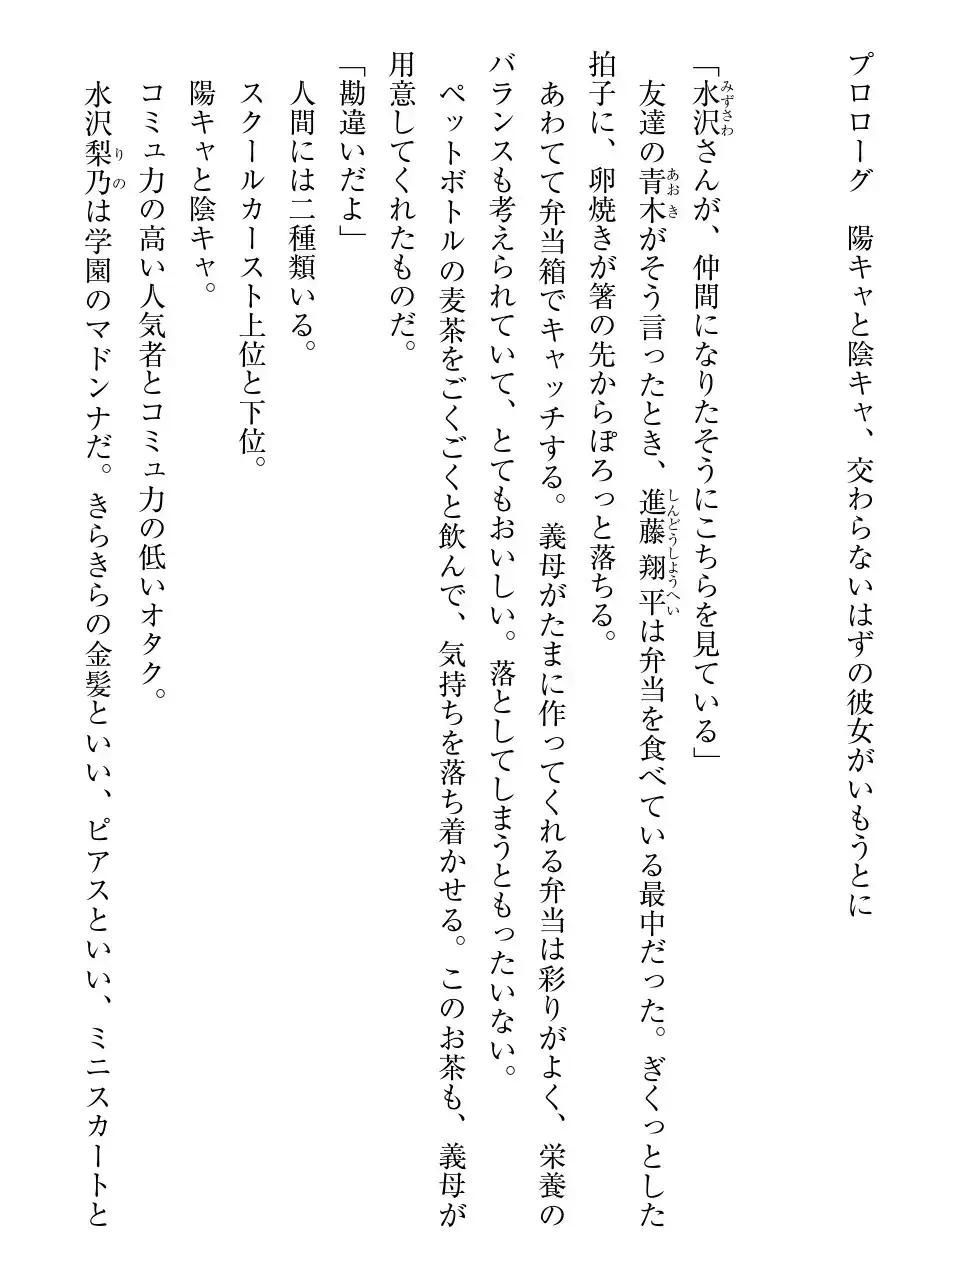 プロローグ　陽キャと陰キャ、交わらないはずの彼女がいもうとに
「水沢さんが、仲間になりたそうにこちらを見ている」
　友達の青木がそう言ったとき、進藤翔平は弁当を食べている最中だった。ぎくっとした
拍子に、卵焼きが箸の先からぽろっと落ちる。
　あわてて弁当箱でキャッチする。義母がたまに作ってくれる弁当は彩りがよく、栄養の
バランスも考えられていて、とてもおいしい。落としてしまうともったいない。
　ペットボトルの麦茶をごくごくと飲んで、気持ちを落ち着かせる。このお茶も、義母が
用意してくれたものだ。
「勘違いだよ」
　人間には二種類いる。
　スクールカースト上位と下位。
　陽キャと陰キャ。
　コミュ力の高い人気者とコミュ力の低いオタク。
　水沢梨乃は学園のマドンナだ。きらきらの金髪といい、ピアスといい、ミニスカートと